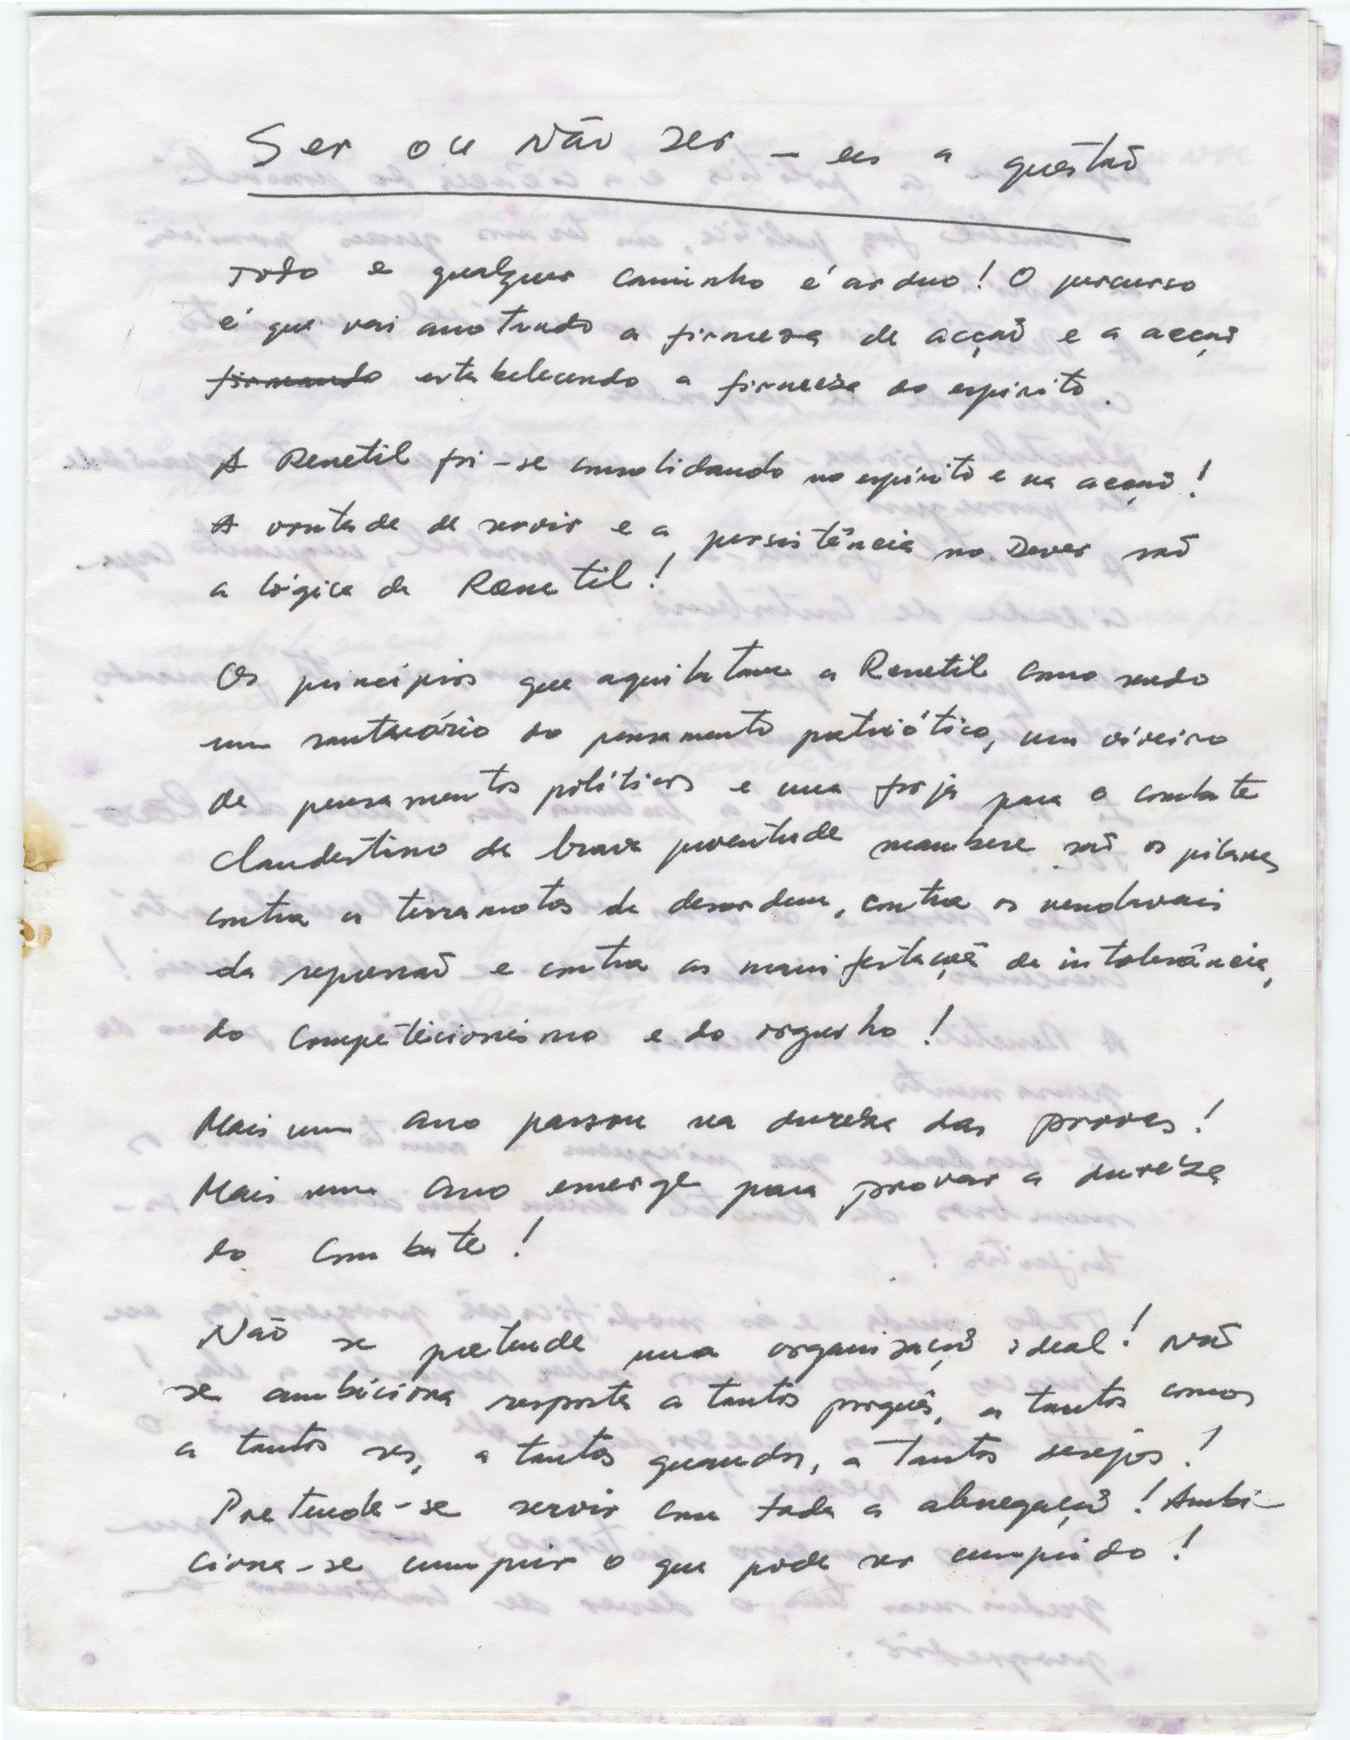 Ser ou Não ser – eis a questão
Todo e qualquer caminho é arduo! O percurso
é que vai mostrando a firmeza de acção e a acção
firmando estabelecendo a firmeza do espírito.
A Renetil foi-se consolidando no espírito e na acção!
A vontade de servir e a persistência no Dever são
a lógica da Renetil!
Os princípios que aquilatam a Renetil como sendo
um santuário do pensamento patriótico, um viveiro
de pensamentos políticos e uma forja para o combate
clandestino da brava juventude maubere são os pilares
contra os terramotos da desordem, contra os vendavais
da repressão e contra as manifestações de intolerância,
do competicionismo e do orgulho!
Mais um ano passou na dureza das provas!
Mais um ano emerge para provar a dureza
do combate!
Não se pretende uma organização ideal! Não
se ambiciona resposta a tantos porquês, a tantos comos
a tantos ses, a tantos quandos, a tantos desejos!
Pretende-se servir com toda a abnegação! Ambi-
ciona-se cumprir o que pode ser cumprido!